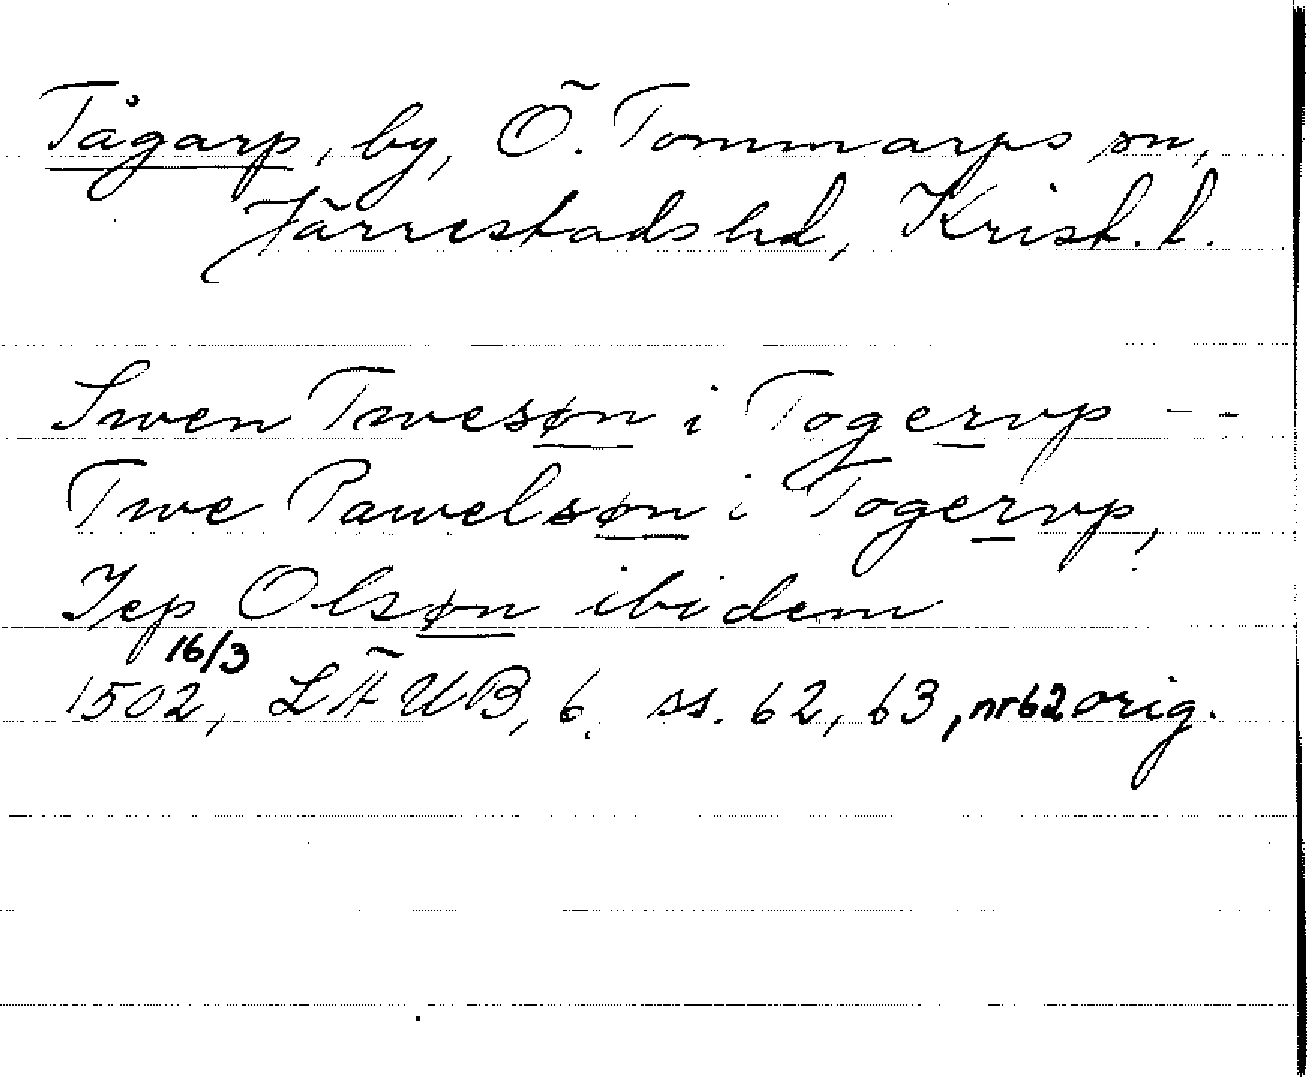 Tågarp, by, Ö. Tommarps sn,
Järrestads hd, Krist. l.
Swen Twesøn i Togervp --
Twe Pawelsøn i Togervp,
Jep Olsøn ibidem
16/3
1502, LÄUB, 6, ss. 62, 63, nr 62 orig.